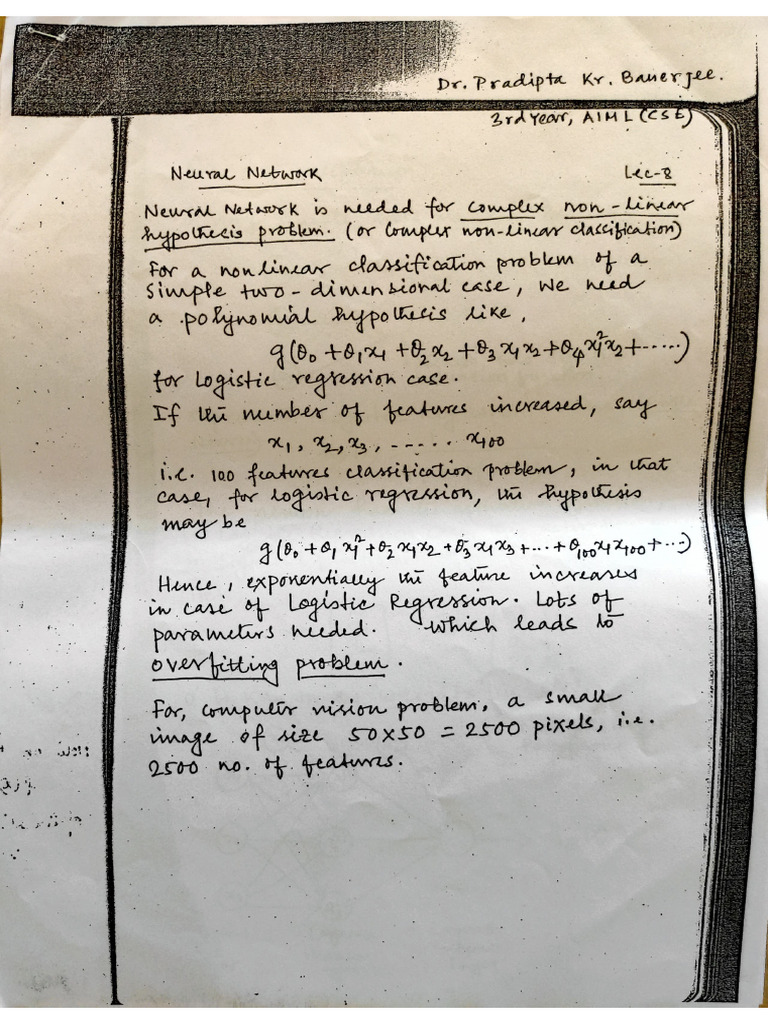 Dr. Pradipta Kr. Banerjee.
3rd Year, AIML (CSE)
Neural Network Lec-8
Neural Network is needed for complex non-linear
hypothesis problem. (or Complex non-linear classification)
For a nonlinear classification problem of a
simple two-dimensional case, we need
a polynomial hypothesis like,
g(θ₀ + θ₁x₁ + θ₂x₂ + θ₃x₁x₂ + θ₄x₁²x₂ + .....)
for Logistic regression case.
If the number of features increased, say
x₁, x₂, x₃, ------ x₁₀₀
i.e. 100 features classification problem, in that
case, for logistic regression, the hypothesis
may be
g(θ₀ + θ₁x₁² + θ₂x₁x₂ + θ₃x₁x₃ + ... + θ₁₀₀x₁x₁₀₀ + ...)
Hence, exponentially the feature increases
in case of Logistic Regression. Lots of
parameters needed. Which leads to
overfitting problem.
For, computer vision problem, a small
image of size 50×50 = 2500 pixels, i.e.
2500 no. of features.